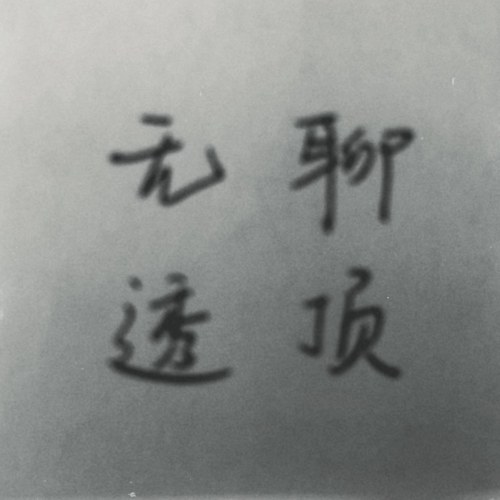 无聊
透顶